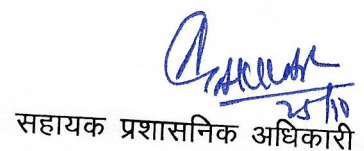 25/10
सहायक प्रशासनिक अधिकारी